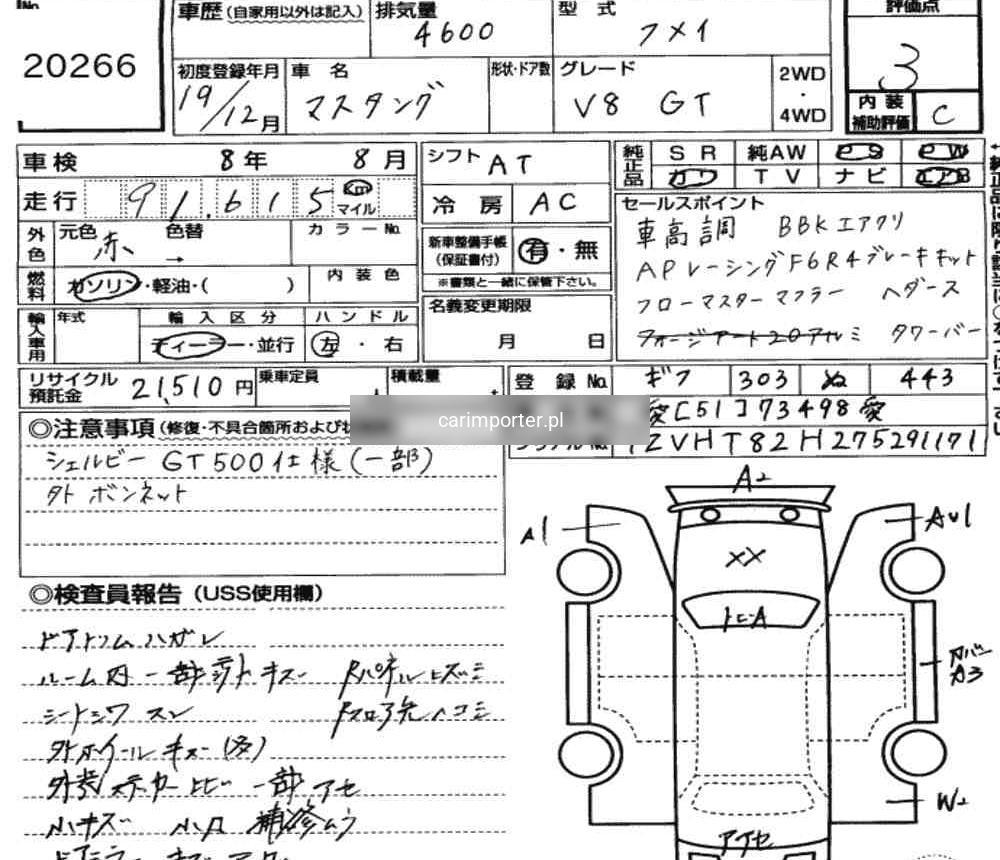 No.
20266
車歴(自家用以外は記入) 排気量 4600 型式 フメイ 評価点 3
初度登録年月 19/12月 車名 マスタング 形状・ドア数 グレード V8 GT 2WD・4WD 内装補助評価 C
車検 8年 8月
走行 91.615 Km マイル
外色 元色 赤 色替 → カラーNo.
燃料 ガソリン・軽油・( ) 内装色
輸入車用 年式 輸入区分 ディーラー・並行 ハンドル 左・右
シフト AT
冷房 AC
新車整備手帳(保証書付) 有・無
※書類と一緒に保管下さい。
名義変更期限
月 日
純正品 SR 純AW PS PW
カワ TV ナビ エアB
セールスポイント
車高調 BBKエアクリ
APレーシングF6R4ブレーキキット
フローマスターマフラー ヘダース
タワーバー
リサイクル預託金 21,510円 乗車定員 人 積載量 t
登録No. ギフ 303 ぬ 443
愛[51]73498愛
1ZVHT82H275291171
carimporter.pl
◎注意事項(修復・不具合箇所およびそ
シェルビー GT500仕様(一部)
外 ボンネット
◎検査員報告(USS使用欄)
ドアトリムハガレ
ルーム内一部
シートシワ スレ
外ホイールキズ(多)
一部アセ
小キズ 小凹 補修ムラ
A2
A1
AU1
XX
トビA
A3
W2
アアセ